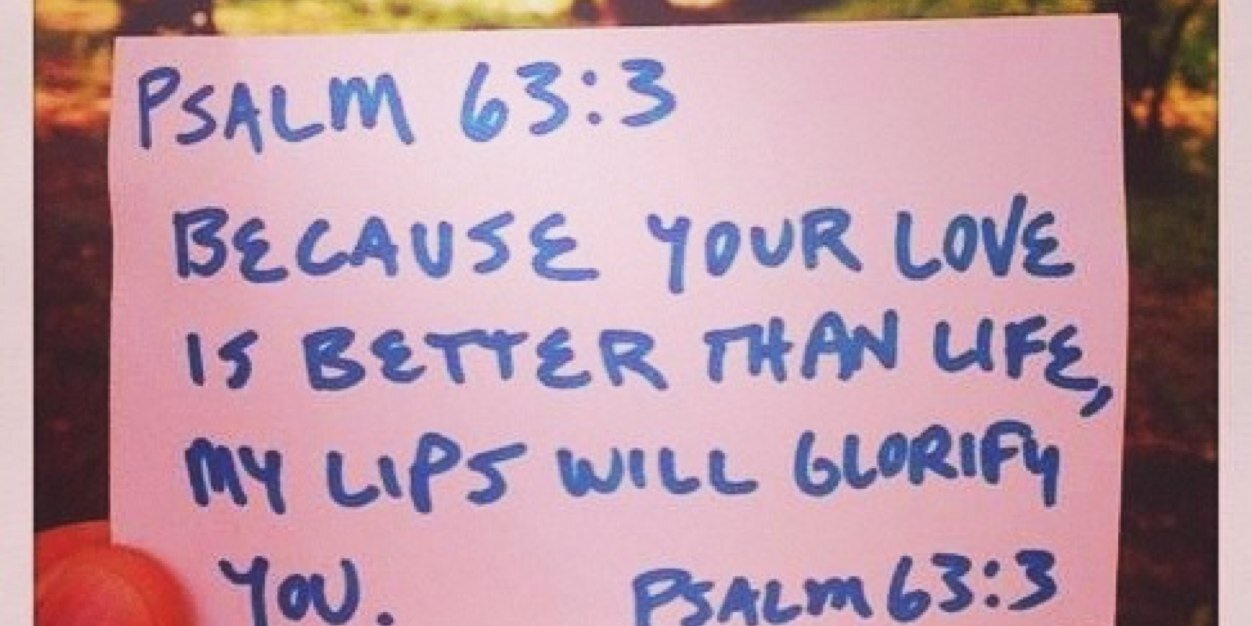 PSALM 63:3
BECAUSE YOUR LOVE
IS BETTER THAN LIFE,
MY LIPS WILL GLORIFY
YOU. PSALM 63:3